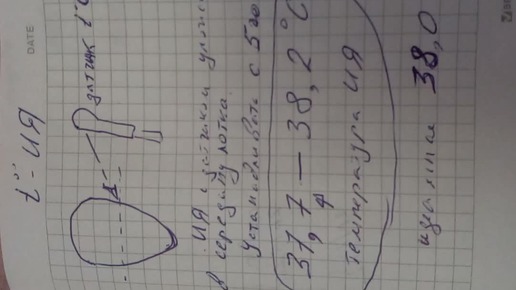 DATE
t° - ИЯ
датчик t°
ИЯ с датчиком
в середину лотка.
Устанавливать с 5
37,7 — 38,2 °C
температура ИЯ
идеальная 38,0